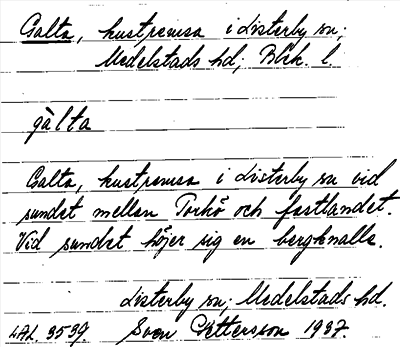 Galta, kustremsa i Listerby sn;
Medelstads hd; Blek. l.
gàlta
Galta, kustremsa i Listerby sn vid
sundet mellan Torkö och fastlandet.
Vid sundet höjer sig en bergknalle.
Listerby sn; Medelstads hd.
LAL 3539. Sven Pettersson 1937.